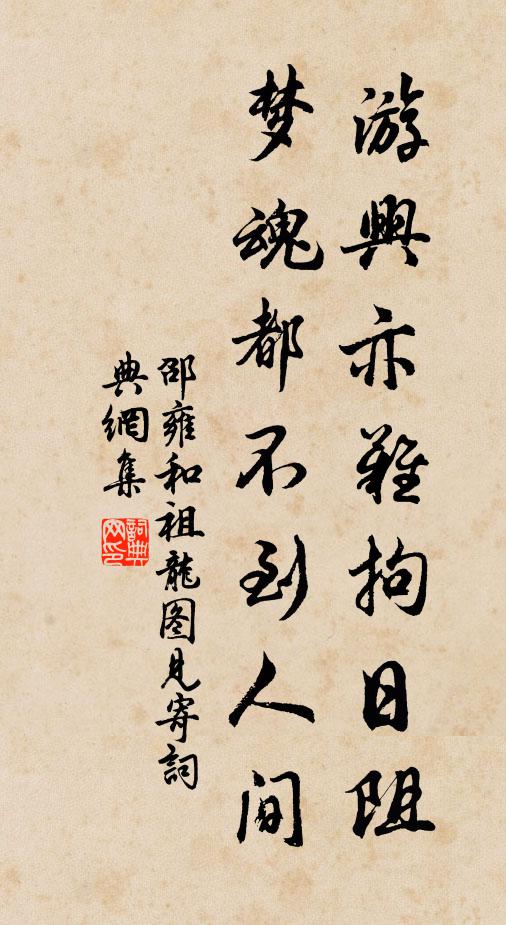 游興亦難拘日阻
梦魂都不到人间
邵雍和祖龍图見寄詞
典網集
詞典网印